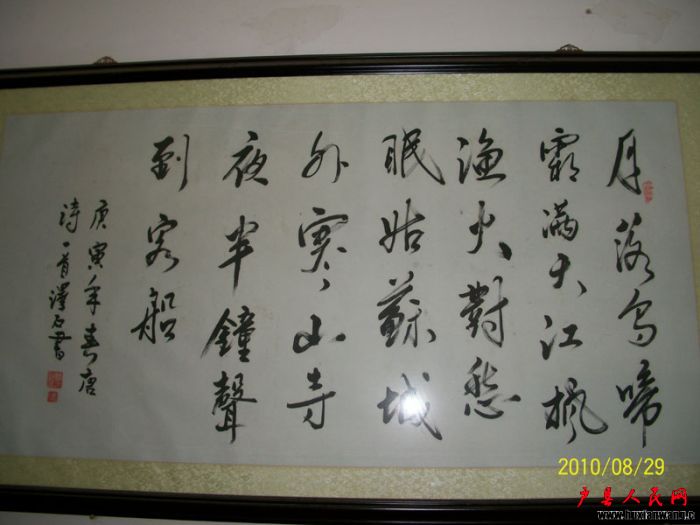 月落烏啼
霜滿天江楓
漁火對愁
眠姑蘇城
外寒山寺
夜半鐘聲
到客船
庚寅年春唐
詩一首澤石書
2010/08/29
户县人民网
www.huxianwang.c